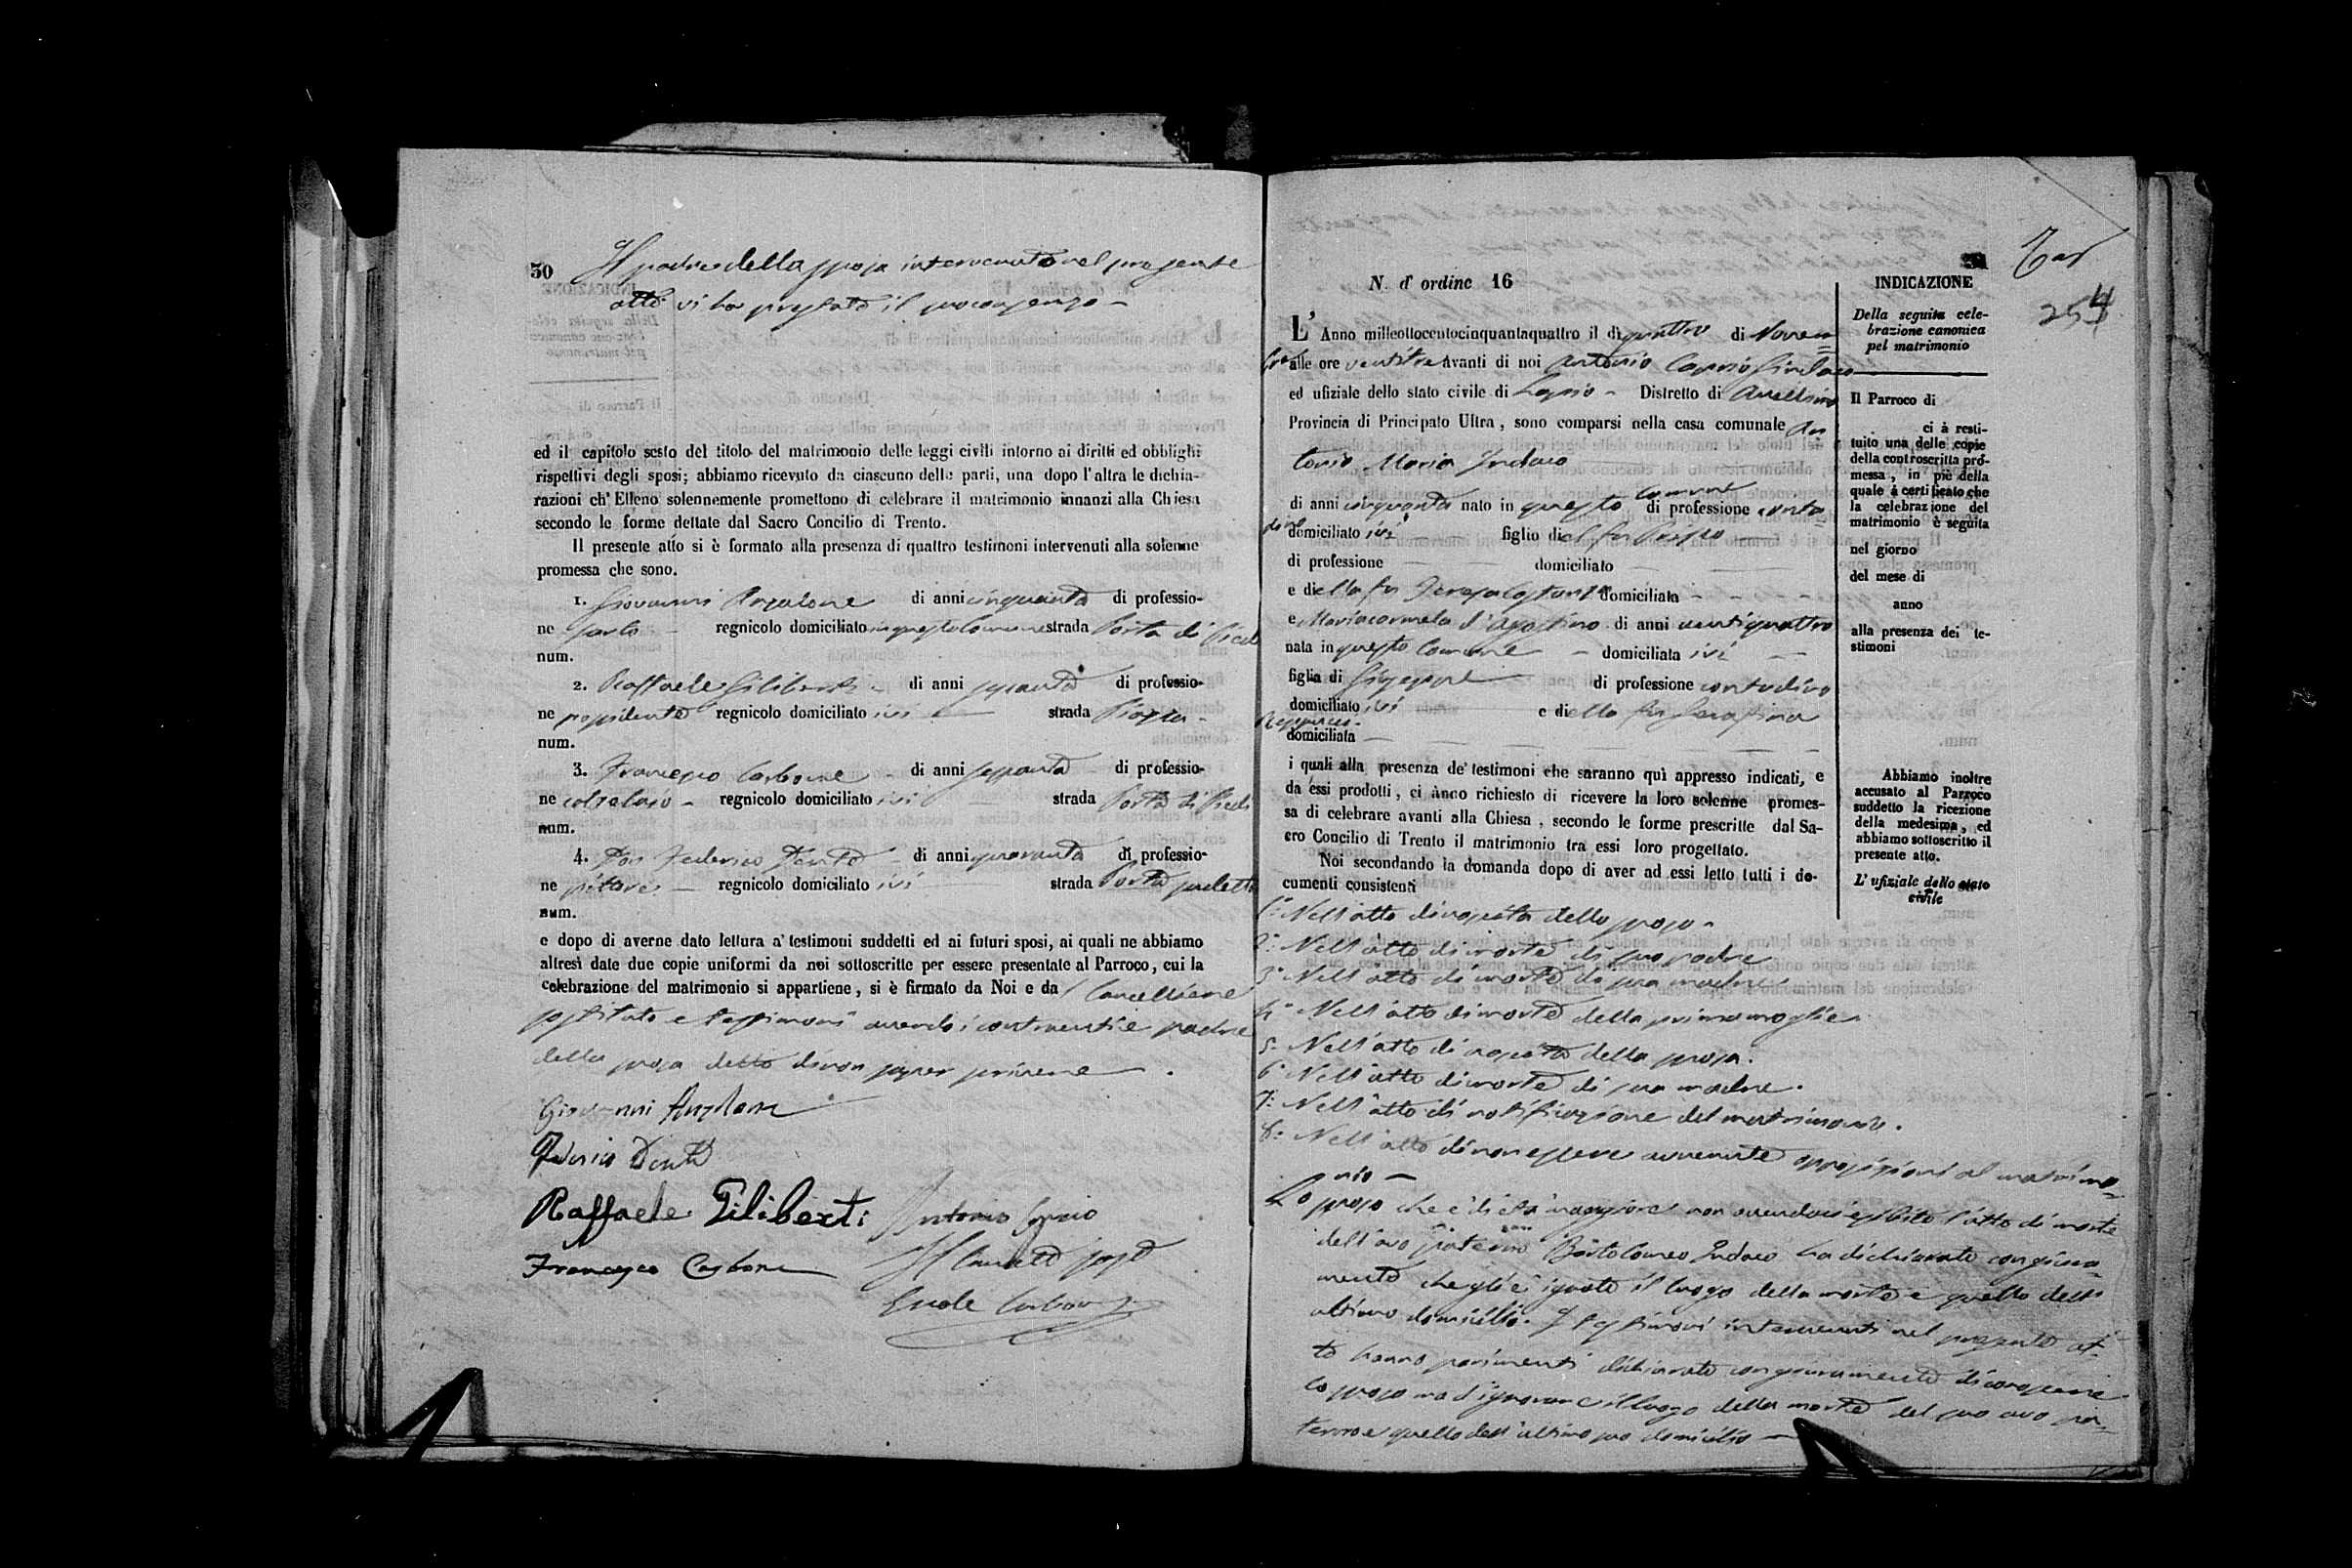 30 Il padre della sposa intervenuto nel presente
atto vi ha prestato il suo consenzo –
ed il capitolo sesto del titolo del matrimonio delle leggi civili intorno ai diritti ed obblighi
rispettivi degli sposi; abbiamo ricevuto da ciascuno delle parti, una dopo l'altra le dichia-
razioni ch'Elleno solennemente promettono di celebrare il matrimonio innanzi alla Chiesa
secondo le forme dettate dal Sacro Concilio di Trento.
Il presente atto si è formato alla presenza di quattro testimoni intervenuti alla solenne
promessa che sono.
1. Giovanni Anzalone di anni cinquanta di professio-
ne sarto – regnicolo domiciliato in questo Comune strada Porta di
num.
2. Raffaele Giliberti – di anni di professio-
ne possidente regnicolo domiciliato ivi — strada Piazza –
num.
3. Francesco Carbone – di anni sessanta di professio-
ne calzolaio – regnicolo domiciliato ivi strada Porta di
num.
4. Don Federico Dente – di anni quaranta di professio-
ne – regnicolo domiciliato ivi strada Porta
num.
e dopo di averne dato lettura a' testimoni suddetti ed ai futuri sposi, ai quali ne abbiamo
altresì date due copie uniformi da noi sottoscritte per essere presentate al Parroco, cui la
celebrazione del matrimonio si appartiene, si è firmato da Noi e da l Cancelliere
sostituto e testimoni avendo i contraenti e padre
della sposa detto di non saper scrivere – .
Giovanni Anzalone
Federico Dente
Raffaele Giliberti Antonio Caprio
Francesco Carbone Il Cancell. sost.
Carbone
N. d' ordine 16
31
254
L' Anno milleottocentocinquantaquattro il dì quattro di Novem=
bre alle ore ventitre Avanti di noi Antonio Caprio Sindaco
ed ufiziale dello stato civile di Lapio – Distretto di Avellino
Provincia di Principato Ultra, sono comparsi nella casa comunale An
tonio Maria Indaco
di anni cinquanta nato in questo Comune di professione conta-
dino domiciliato ivi — figlio di el fu —
di professione — — domiciliato — —
e di ella fu Teresa Costanza domiciliata – – –
e Mariacarmela d'Agostino di anni ventiquattro
nata in questo Comune – domiciliata ivi —
figlia di Giuseppe — di professione contadino
domiciliato ivi — e di ella fu Serafina
domiciliata — — — —
i quali alla presenza de' testimoni che saranno quì appresso indicati, e
da essi prodotti, ci ànno richiesto di ricevere la loro solenne promes-
sa di celebrare avanti alla Chiesa, secondo le forme prescritte dal Sa-
cro Concilio di Trento il matrimonio tra essi loro progettato.
Noi secondando la domanda dopo di aver ad essi letto tutti i do-
cumenti consistenti
1.º Nell'atto di nascita dello sposo –
2.º Nell'atto di morte di suo padre
3.º Nell'atto di morte di sua madre
4.º Nell'atto di morte della prima moglie.
5.º Nell'atto di nascita della sposa.
6.º Nell'atto di morte di sua madre.
7.º Nell'atto di notificazione del matrimonio.
8.º Nell'atto di non essere avvenute opposizioni al matrimo=
nio –
Lo sposo che è di età maggiore non avendoci esibito l'atto di morte
dell'avo paterno Bartolomeo Indaco ha dichiarato con giura=
mento che gli è ignoto il luogo della morte e quello dell'
ultimo domicilio. I testimoni intervenuti nel presente at=
to hanno parimenti dichiarato con giuramento di conoscere
lo sposo ma d'ignorare il luogo della morte del suo avo pa=
terno e quello dell'ultimo suo domicilio —
INDICAZIONE
Della seguita cele-
brazione canonica
pel matrimonio
Il Parroco di
ci à resti-
tuito una delle copie
della controscritta pro-
messa, in piè della
quale à certificato che
la celebrazione del
matrimonio è seguita
nel giorno
del mese di
anno
alla presenza dei te-
stimoni
Abbiamo inoltre
accusato al Parroco
suddetto la ricezione
della medesima, ed
abbiamo sottoscritto il
presente atto.
L' ufiziale dello stato
civile